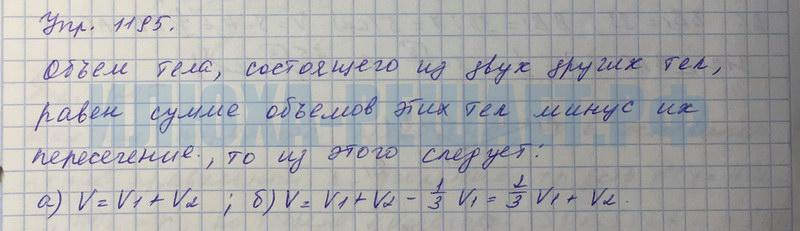 Упр. 1195.
Объем тела, состоящего из двух других тел,
равен сумме объемов этих тел минус их
пересечение, то из этого следует:
а) V = V1 + V2 ; б) V = V1 + V2 - 1/3 V1 = 2/3 V1 + V2.